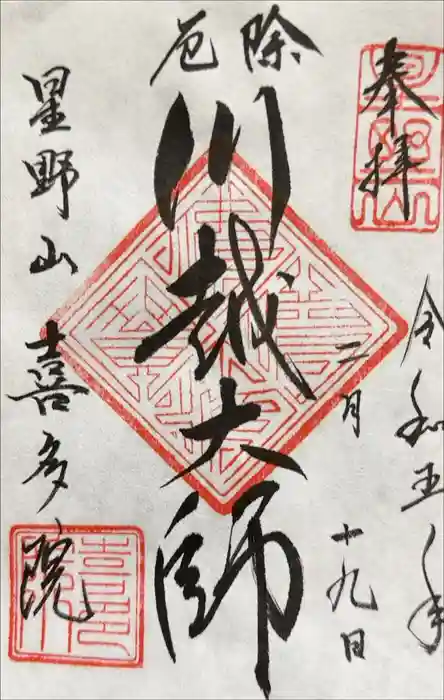 奉拝
令和五年
二月十九日
除厄
川越大師
星野山喜多院